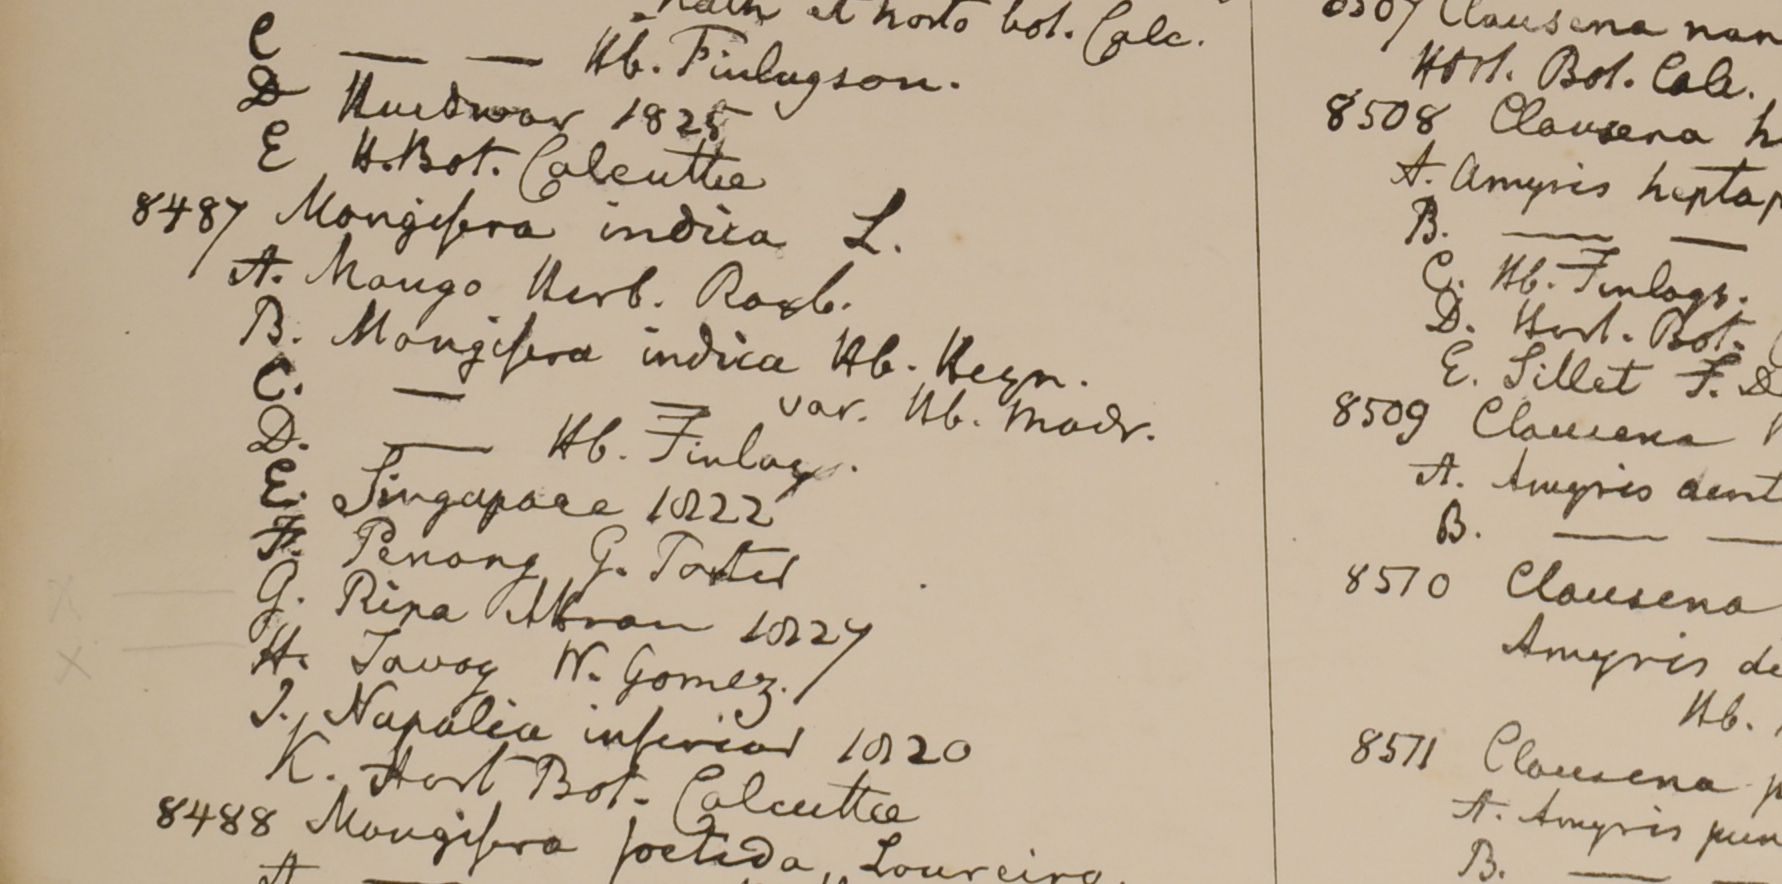 et horto bot. Calc.
C — — Hb. Finlayson.
D Hurdwar 1825
E H. Bot. Calcutta
8487 Mangifera indica L.
A. Mango Herb. Roxb.
B. Mangifera indica Hb. Heyn.
C. — var. Hb. Madr.
D. — Hb. Finlay.
E. Singapore 1822
F. Penang G. Porter
G. Ripa 1827
H. Tavoy W. Gomez.
I. Napalia inferior 1820
K. Hort Bot. Calcutta
8488 Mangifera foetida, Loureiro.
A —
8507 Clausena nan
Hort. Bot. Calc.
8508 Clausena h
A. Amyris heptap
B. — —
C. Hb. Finlays.
D. Hort. Bot. C
E. Sillet F. D
8509 Clausena
A. Amyris dent
B. — —
8510 Clausena
Amyris de
Hb.
8511 Clausena p
A. Amyris pun
B. — —